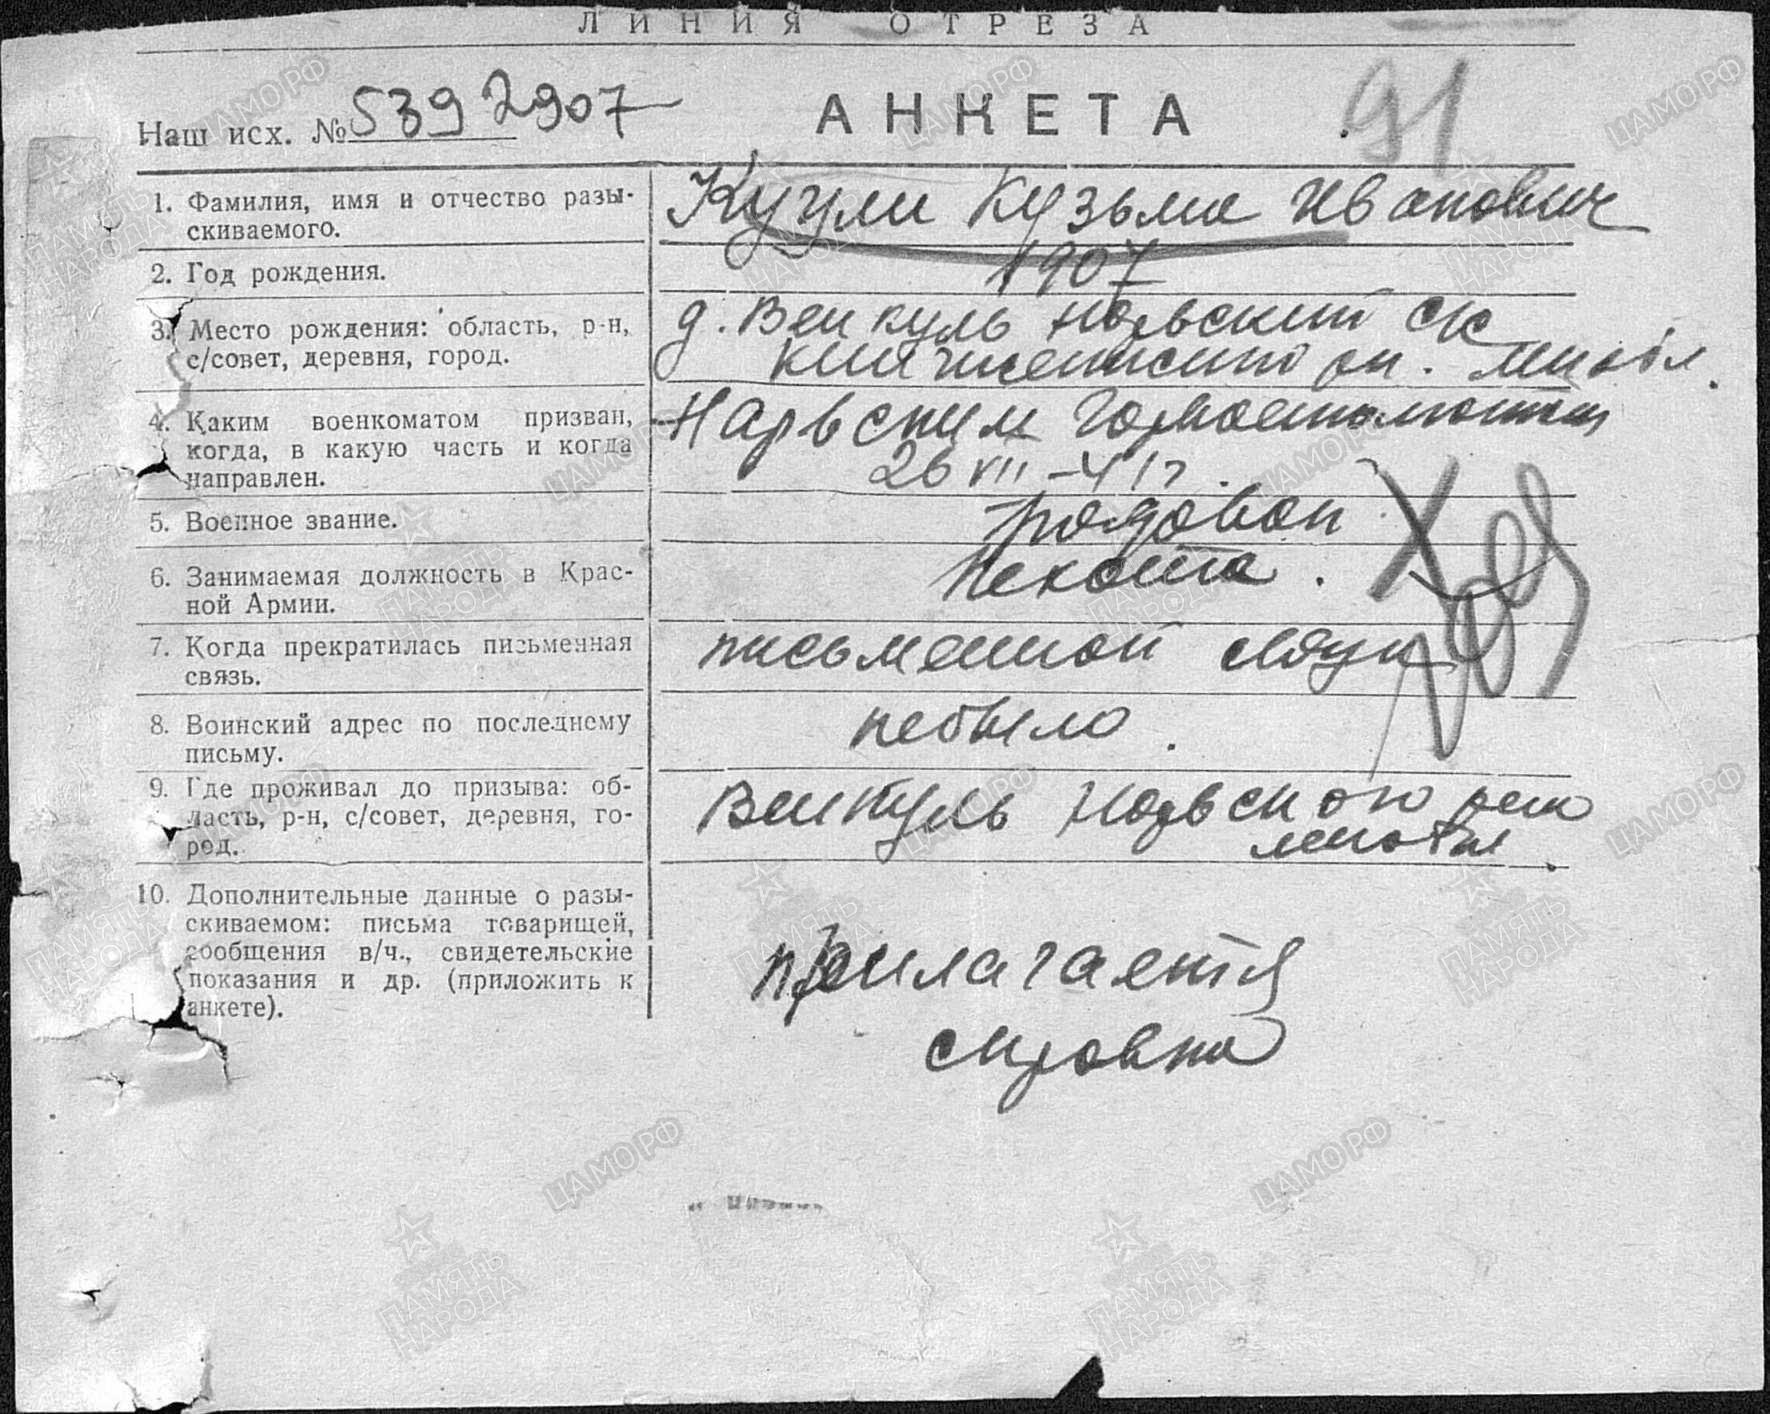 ЛИНИЯ ОТРЕЗА
Наш исх. № 5392907
АНКЕТА
91
1. Фамилия, имя и отчество разы-
скиваемого.
Кузьма Иванович
2. Год рождения.
1907
3. Место рождения: область, р-н,
с/совет, деревня, город.
д. Венкуль Норвский с/с
4. Каким военкоматом призван,
когда, в какую часть и когда
направлен.
Нарвским
26 VII-41 г.
5. Военное звание.
рядовой
6. Занимаемая должность в Крас-
ной Армии.
пехота.
7. Когда прекратилась письменная
связь.
письменной
8. Воинский адрес по последнему
письму.
небыло.
9. Где проживал до призыва: об-
ласть, р-н, с/совет, деревня, го-
род.
Венкуль
10. Дополнительные данные о разы-
скиваемом: письма товарищей,
сообщения в/ч., свидетельские
показания и др. (приложить к
анкете).
прилагается
справка
ЦАМО.РФ
ПАМЯТЬ
НАРОДА